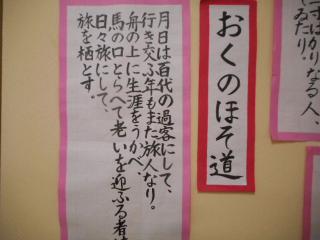 おくのほそ道
月日は百代の過客にして、
行き交ふ年もまた旅人なり。
舟の上に生涯をうかべ、
馬の口とらへて老いを迎ふる者は
日々旅にして、
旅を栖とす。
一寸ばかりなる人、
ゐたり。